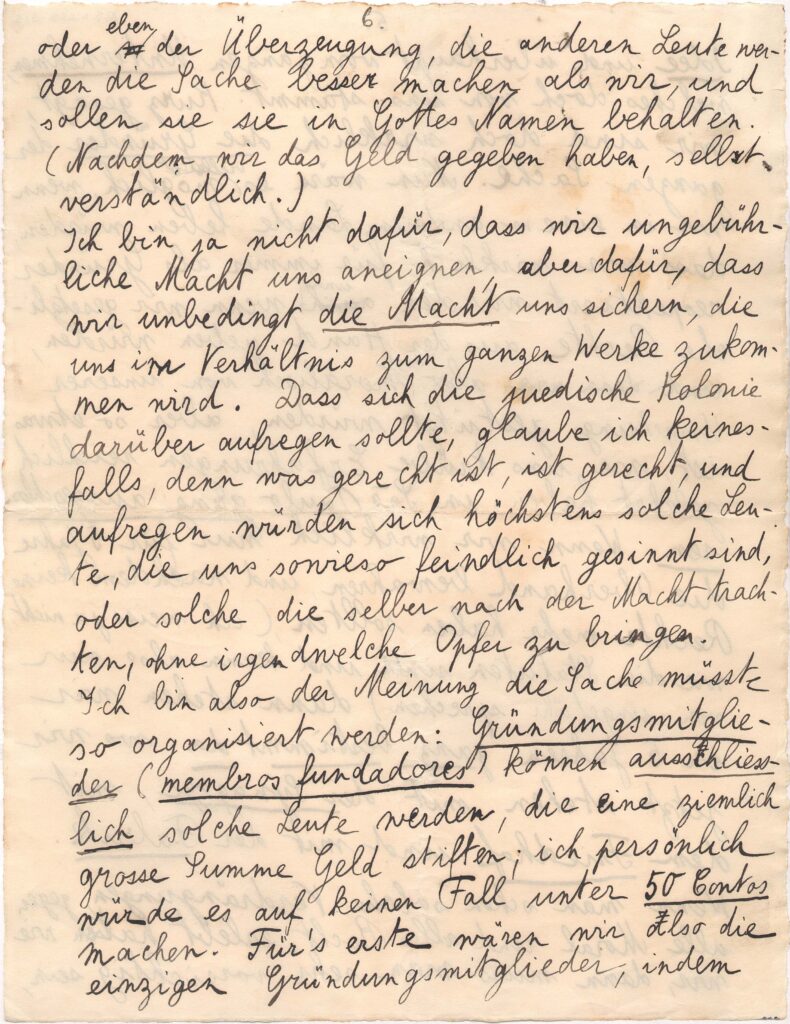 6.
oder eben der Überzeugung, die anderen Leute wer-
den die Sache besser machen als wir, und
sollen sie sie in Gottes Namen behalten.
(Nachdem wir das Geld gegeben haben, selbst-
verständlich.)
Ich bin ja nicht dafür, dass wir ungebühr-
liche Macht uns aneignen, aber dafür, dass
wir unbedingt die Macht uns sichern, die
uns im Verhältnis zum ganzen Werke zukom-
men wird. Dass sich die juedische Kolonie
darüber aufregen sollte, glaube ich keines-
falls, denn was gerecht ist, ist gerecht, und
aufregen würden sich höchstens solche Leu-
te, die uns sowieso feindlich gesinnt sind,
oder solche die selber nach der Macht trach-
ten, ohne irgendwelche Opfer zu bringen.
Ich bin also der Meinung die Sache müsste
so organisiert werden: Gründungsmitglie-
der (membros fundadores) können ausschliess-
lich solche Leute werden, die eine ziemlich
grosse Summe Geld stiften; ich persönlich
würde es auf keinen Fall unter 50 Contos
machen. Für's erste wären wir also die
einzigen Gründungsmitglieder, indem